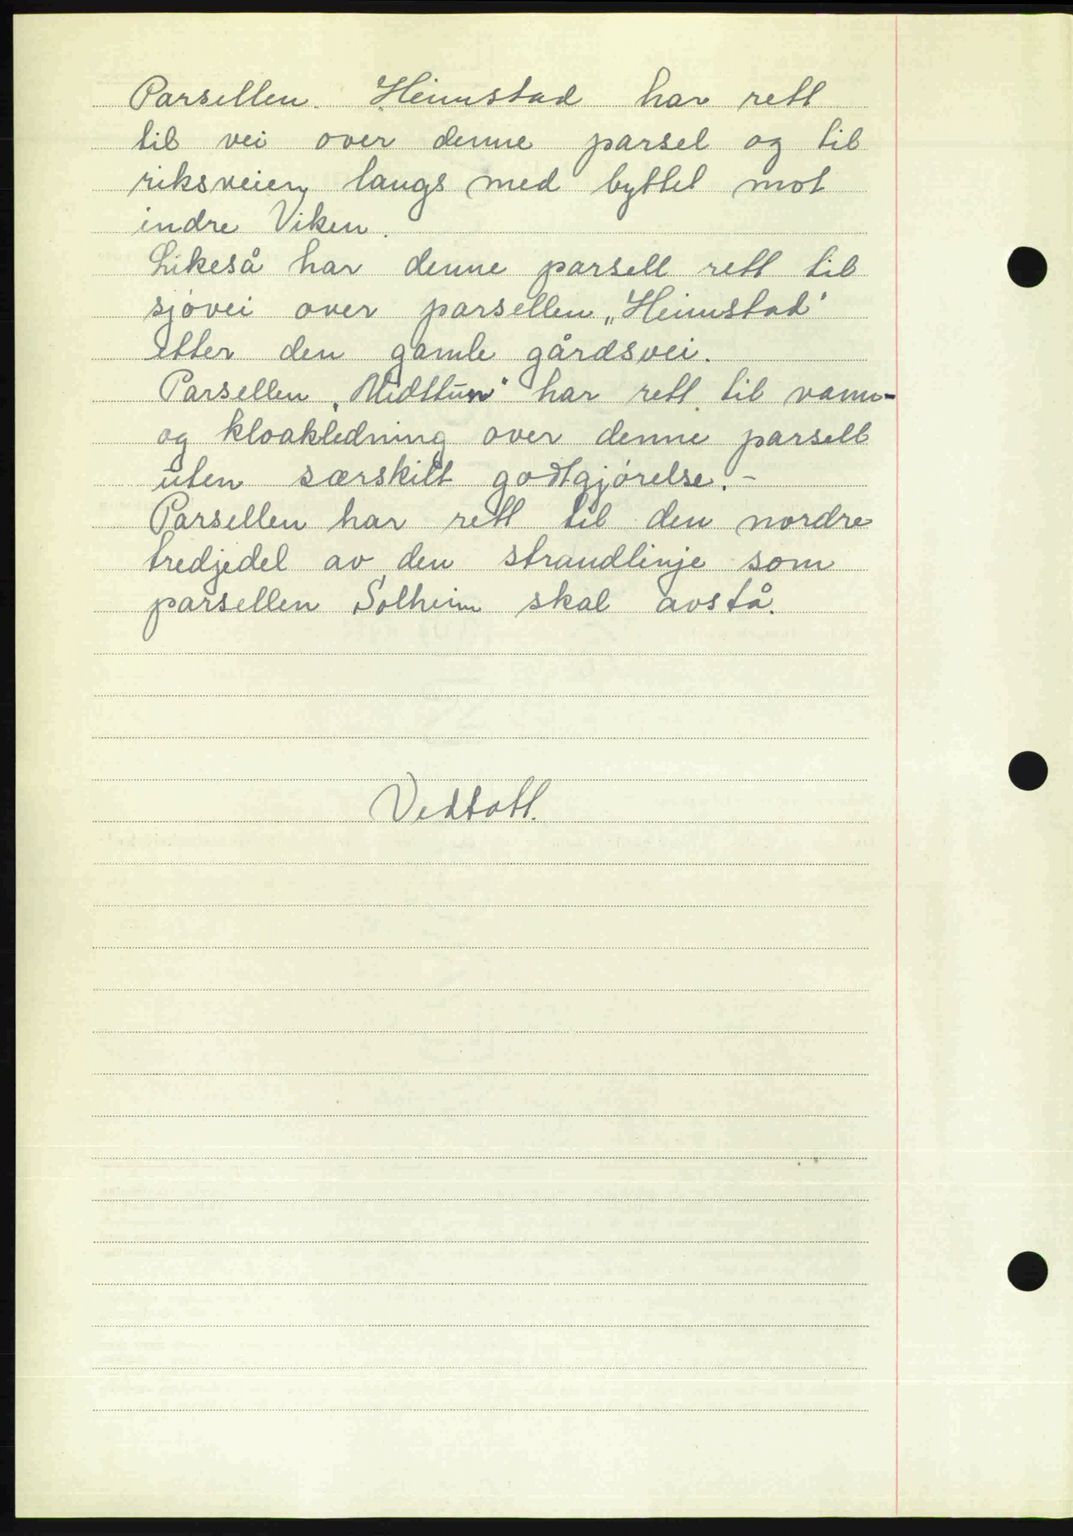 Parsellen Heimstad har rett
til vei over denne parsel og til
riksveien langs med byttet mot
indre Viken.
Likeså har denne parsell rett til
sjøvei over parsellen „Heimstad"
etter den gamle gårdsvei.
Parsellen „Midttun" har rett til vann-
og kloakledning over denne parsell
uten særskilt godtgjørelse. -
Parsellen har rett til den nordre
tredjedel av den strandlinje som
parsellen Solheim skal avstå.
Vedtatt.